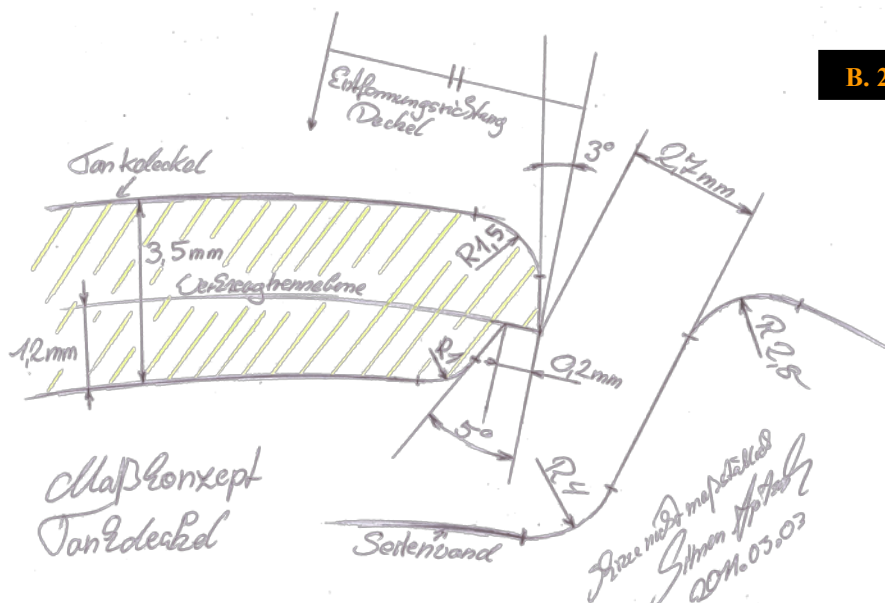 B. 2
Entformungsrichtung
Deckel
3°
2,7mm
Tankdeckel
R1,5
3,5mm
Werkzeugtrennebene
1,2mm
R1
0,2mm
R2,8
5°
R4
Maßkonzept
Tankdeckel
Seitenwand
Skizze nicht maßstäblich
Simon
2011.03.03